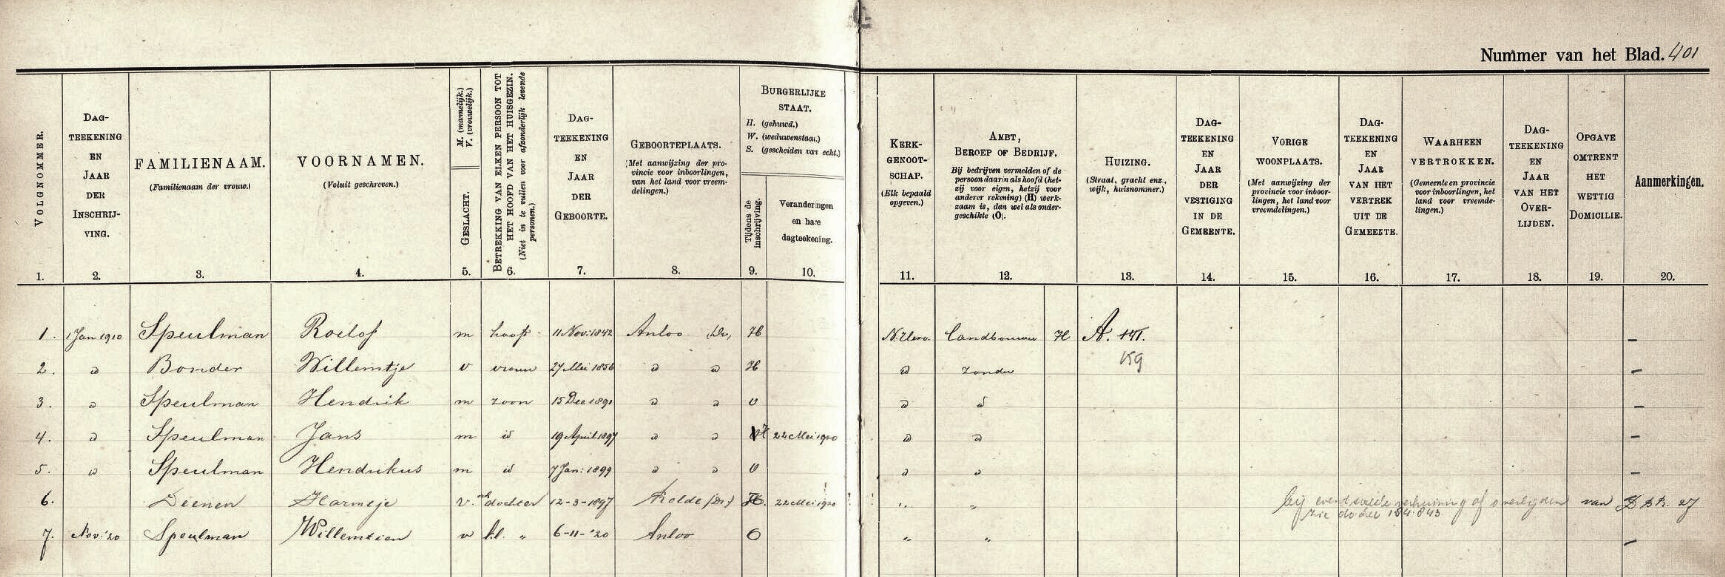 Nummer van het Blad. 401
VOLGNOMMER.
DAG-
TEEKENING
EN
JAAR
DER
INSCHRIJ-
VING.
FAMILIENAAM.
(Familienaam der vrouw.)
VOORNAMEN.
(Voluit geschreven.)
M. (mannelijk.)
V. (vrouwelijk.)
GESLACHT.
BETREKKING VAN ELKEN PERSOON TOT
HET HOOFD VAN HET HUISGEZIN.
(Niet in te vullen voor afzonderlijk levende
personen.)
DAG-
TEEKENING
EN
JAAR
DER
GEBOORTE.
GEBOORTEPLAATS.
(Met aanwijzing der pro-
vincie voor inboorlingen,
van het land voor vreem-
delingen.)
BURGERLIJKE
STAAT.
H. (gehuwd.)
W. (weduwenstaat.)
S. (gescheiden van echt.)
Tijdens de
inschrijving.
Veranderingen
en hare
dagteekening.
KERK-
GENOOT-
SCHAP.
(Elk bepaald
opgeven.)
AMBT,
BEROEP OF BEDRIJF.
Bij bedrijven vermelden of de
persoon daarin als hoofd (het-
zij voor eigen, hetzij voor
anderer rekening) (H) werk-
zaam is, dan wel als onder-
geschikte (O).
HUIZING.
(Straat, gracht enz.,
wijk, huisnommer.)
DAG-
TEEKENING
EN
JAAR
DER
VESTIGING
IN DE
GEMEENTE.
VORIGE
WOONPLAATS.
(Met aanwijzing der
provincie voor inboor-
lingen, het land voor
vreemdelingen.)
DAG-
TEEKENING
EN
JAAR
VAN HET
VERTREK
UIT DE
GEMEENTE.
WAARHEEN
VERTROKKEN.
(Gemeente en provincie
voor inboorlingen, het
land voor vreemde-
lingen.)
DAG-
TEEKENING
EN
JAAR
VAN HET
OVER-
LIJDEN.
OPGAVE
OMTRENT
HET
WETTIG
DOMICILIE.
Aanmerkingen.
1. 2. 3. 4. 5. 6. 7. 8. 9. 10. 11. 12. 13. 14. 15. 16. 17. 18. 19. 20.
1. 1 Jan 1910 Speulman Roelof m hoofd 11 Nov. 1842 Anloo Dr, H N. Herv. Landbouwer H A. 141. –
159
2. " Bonder Willemtje v vrouw 27 Mei 1856 " " H " zonder –
3. " Speulman Hendrik m zoon 15 Dec 1891 " " O " " –
4. " Speulman Jans m id 19 April 1897 " " H 22 Mei 1920 " " –
5. " Speulman Hendrikus m id 7 Jan: 1899 " " O " " –
6. Dienen Harmtje v. dochter 12-3-1897 (Dr) H. 22 Mei 1920 " " bij eventuele verhuizing of overlijden van
zie
7. Nov: '20 Speulman Willemsien v kl. " 6-11-'20 Anloo O " " –